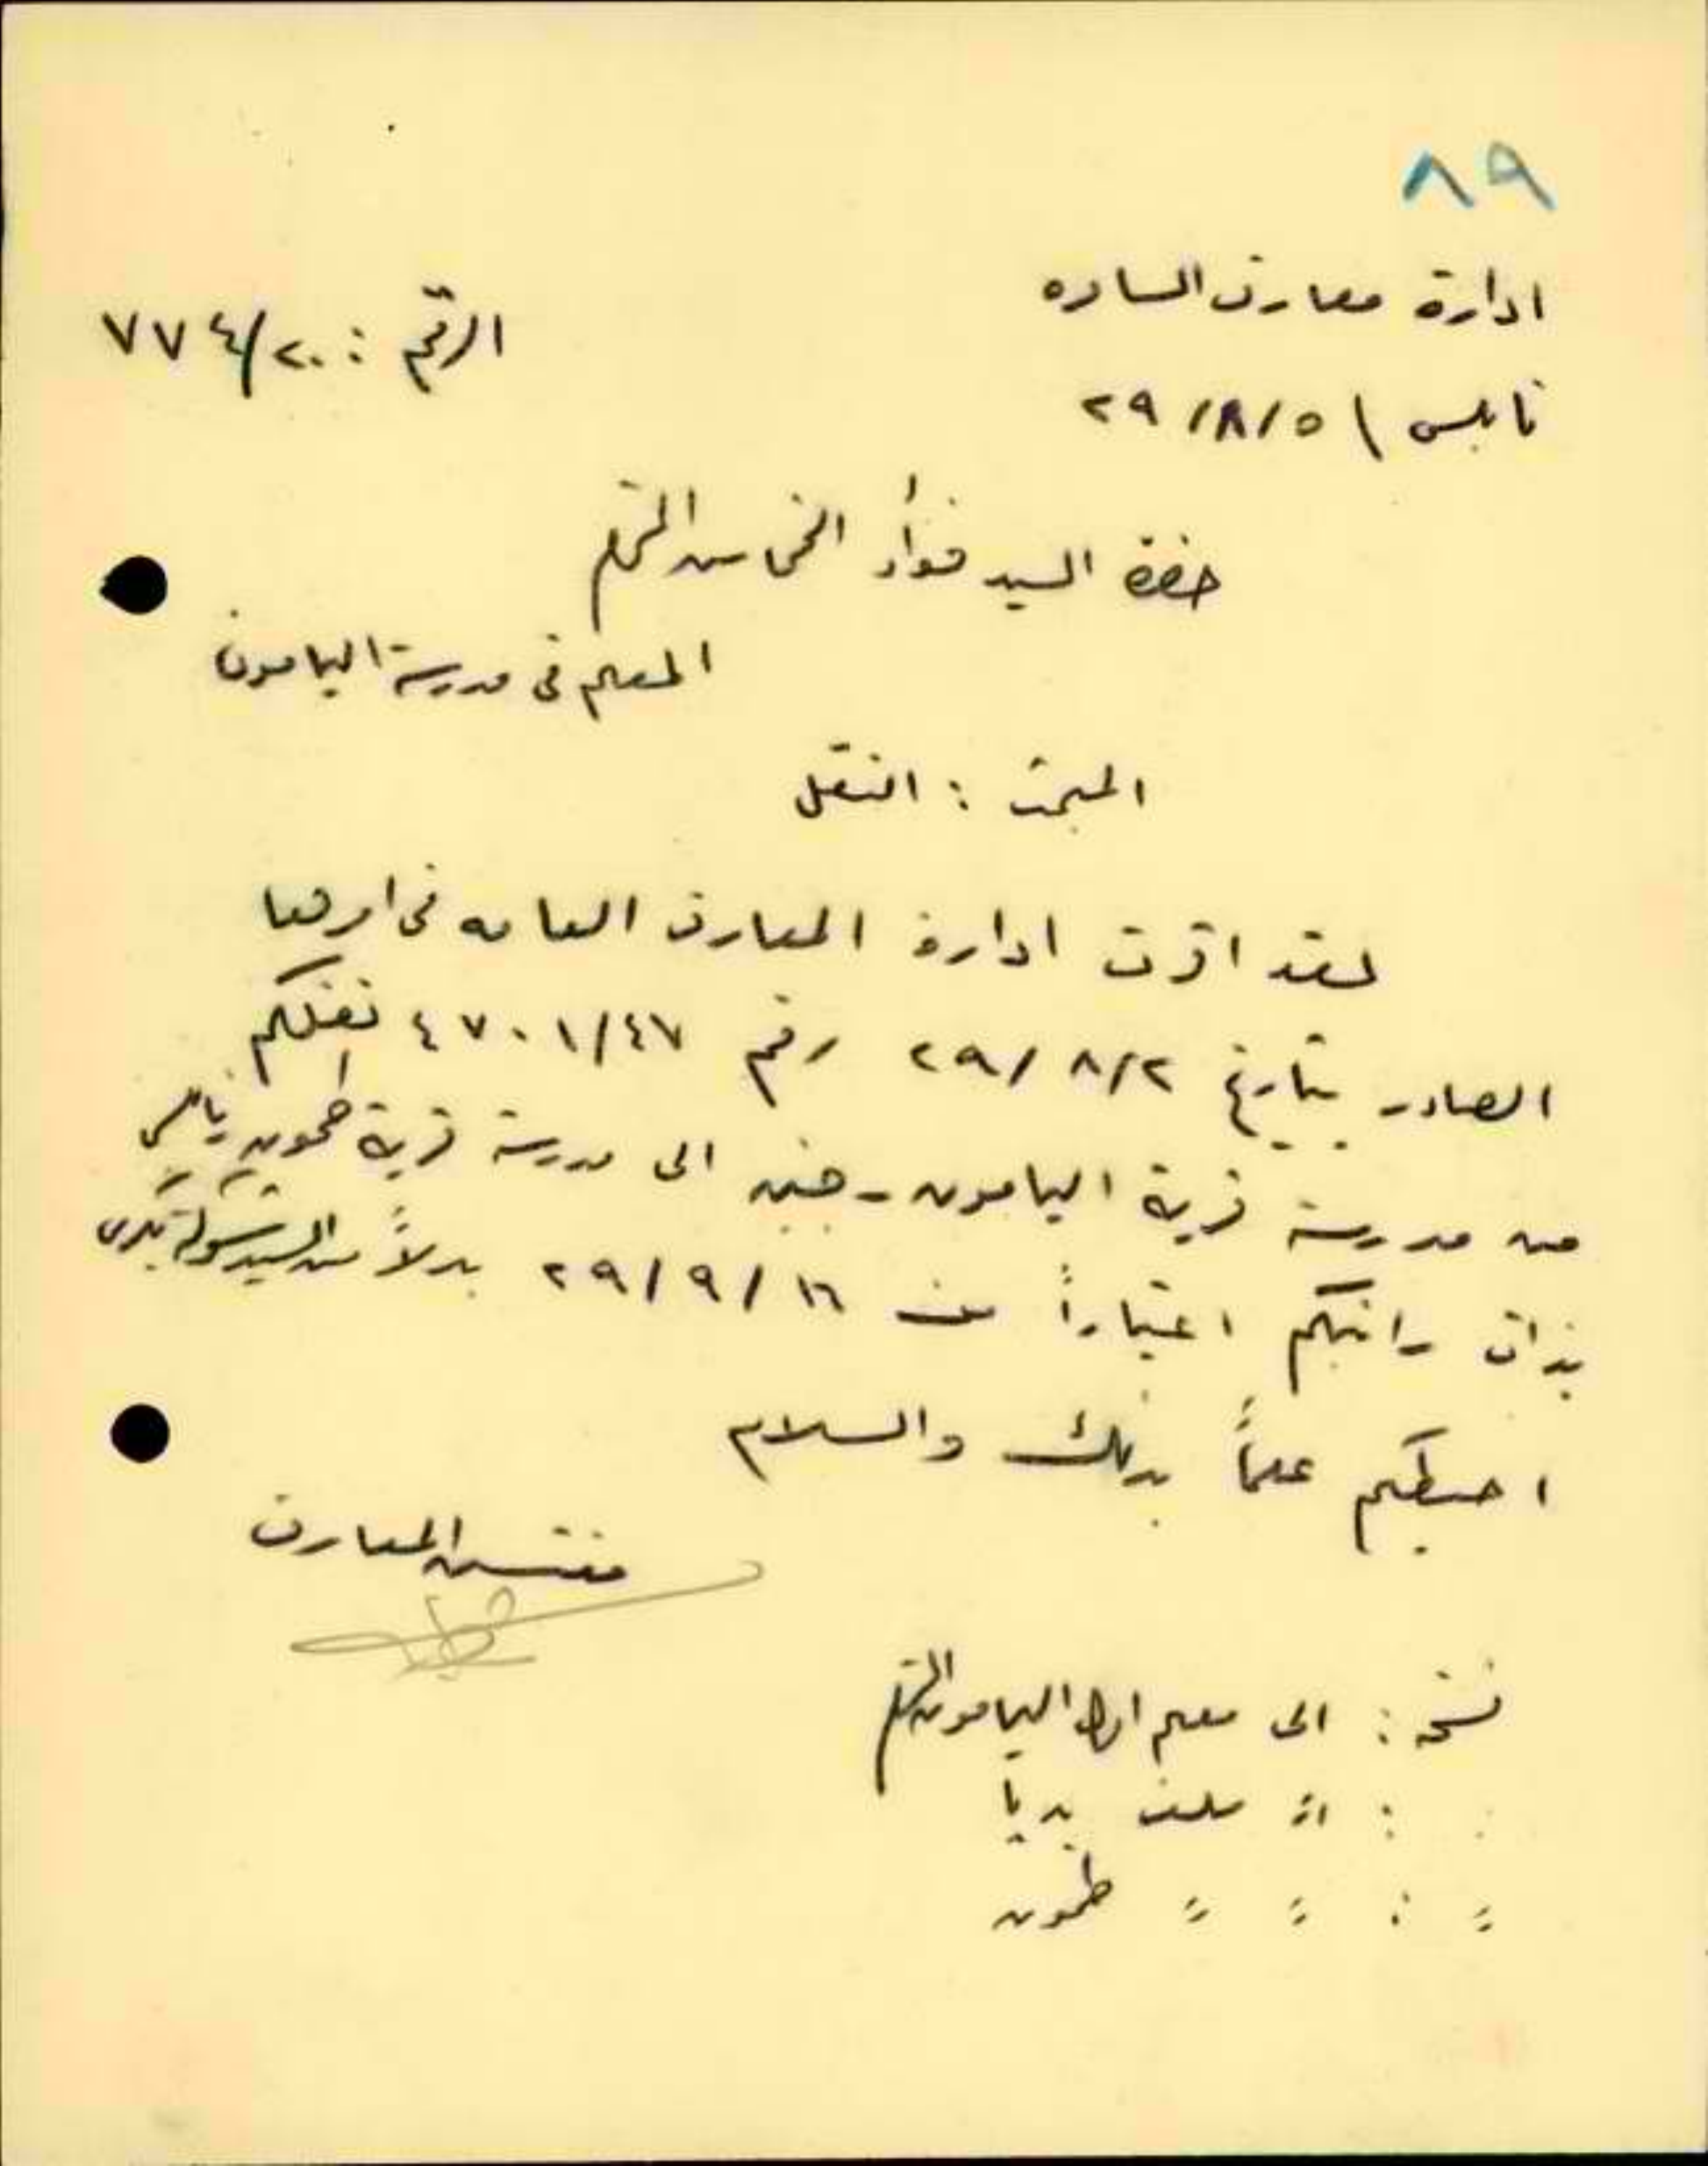 ٨٩
ادارة معارف السامره
الرقم : ٧٧٤/٢٠
نابلس \ ٢٩/٨/٥
حضرة السيد فؤاد الخماش المحترم
المعلم في مدرسة اليامون
المبحث : النقل
لقد اقرت ادارة المعارف العامه في امرها
الصادر بتاريخ ٢٩/٨/٢ رقم ٤٧٠١/٤٧ نقلكم
من مدرسة قرية اليامون - جنين الى مدرسة قرية طمون نابلس
بذات راتبكم اعتباراً من ٢٩/٩/١٦ بدلاً من السيد
احيطكم علماً بذلك والسلام
مفتش المعارف
نسخة : الى معلم اول اليامون المحترم
: " ملف بديا
" : " " طمون